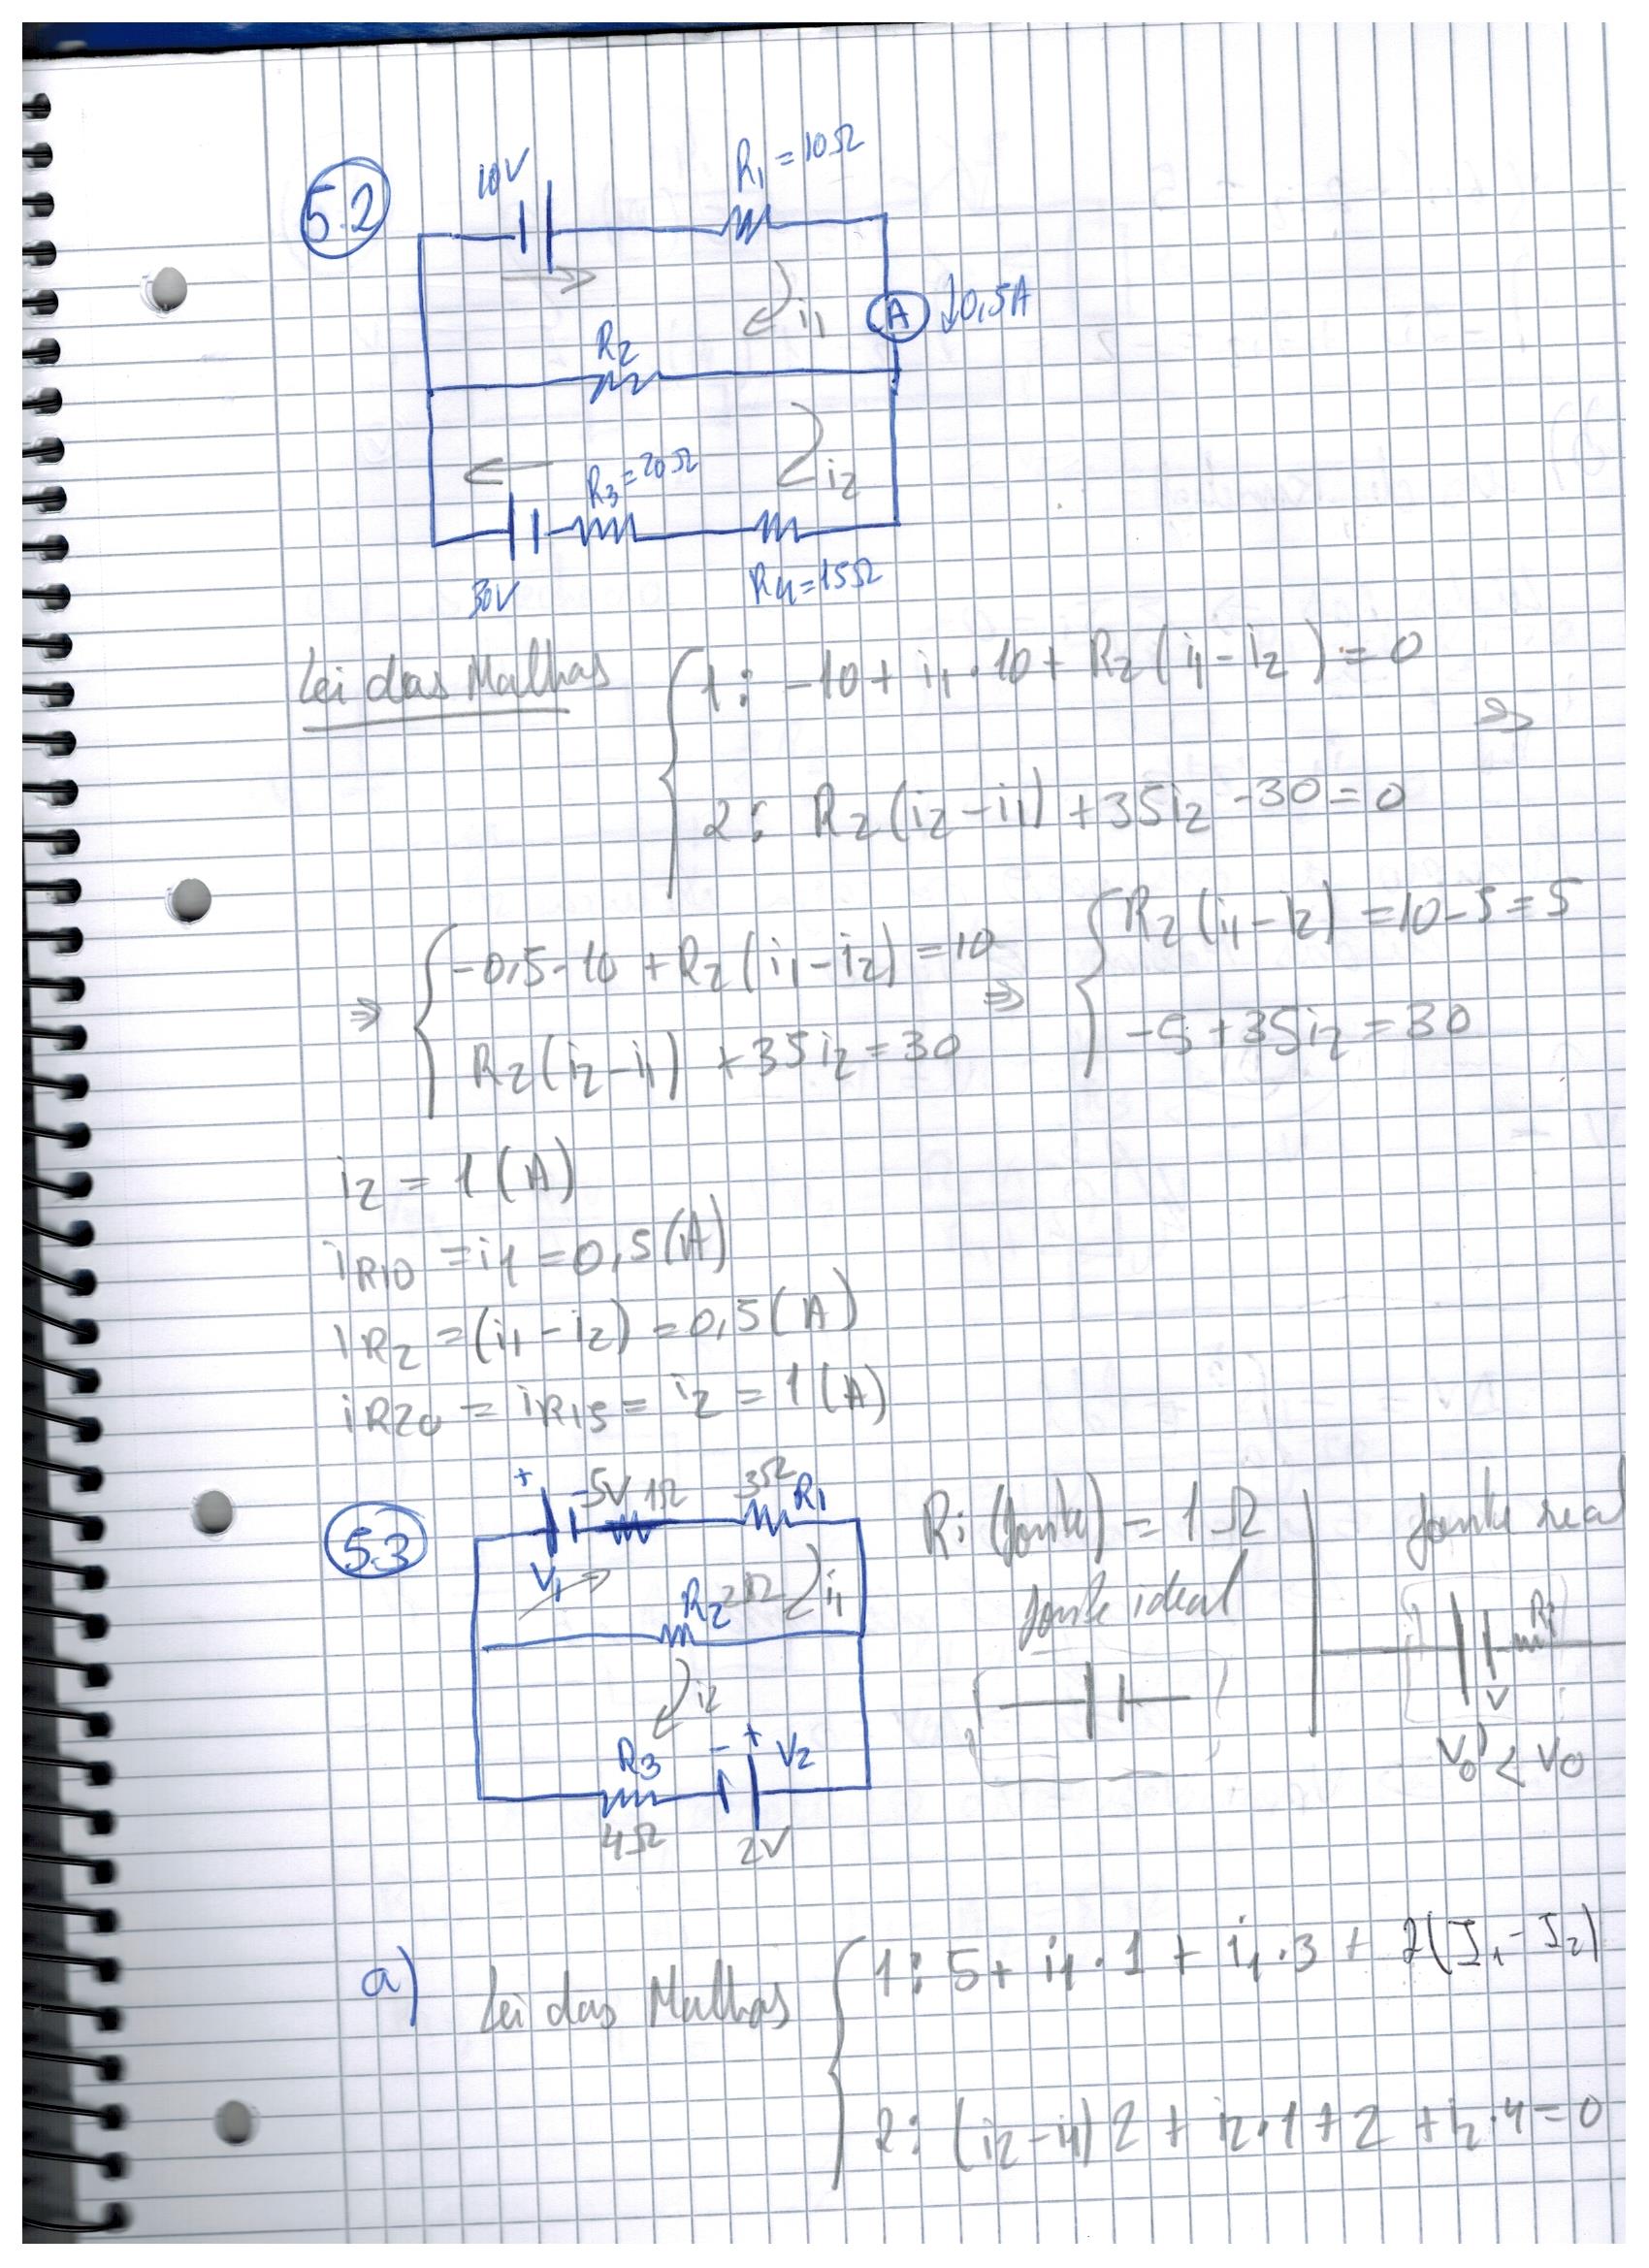 5.2
10V
R1 = 10Ω
i1
A ↓0,5A
R2
R3 = 20Ω
i2
30V
R4 = 15Ω
Lei das Malhas
1: -10 + i1 · 10 + R2 (i1 - i2) = 0
⇒
2: R2 (i2 - i1) + 35i2 - 30 = 0
⇒ -0,5 · 10 + R2 (i1 - i2) = 10
R2 (i2 - i1) + 35i2 = 30
⇒ R2 (i1 - i2) = 10 - 5 = 5
-5 + 35i2 = 30
i2 = 1 (A)
iR10 = i1 = 0,5 (A)
iR2 = (i1 - i2) = 0,5 (A)
iR20 = iR15 = i2 = 1 (A)
5.3
+ - 5V 1Ω 3Ω R1
V1
R2 2Ω i1
i2
R3 - + V2
4Ω 2V
Ri (fonte) = 1Ω
fonte ideal
fonte real
Ri
V
V0' < V0
a) Lei das Malhas
1: 5 + i1 · 1 + i1 · 3 + 2(I1 - I2)
2: (i2 - i1) 2 + i2 · 1 + 2 + i2 · 4 = 0